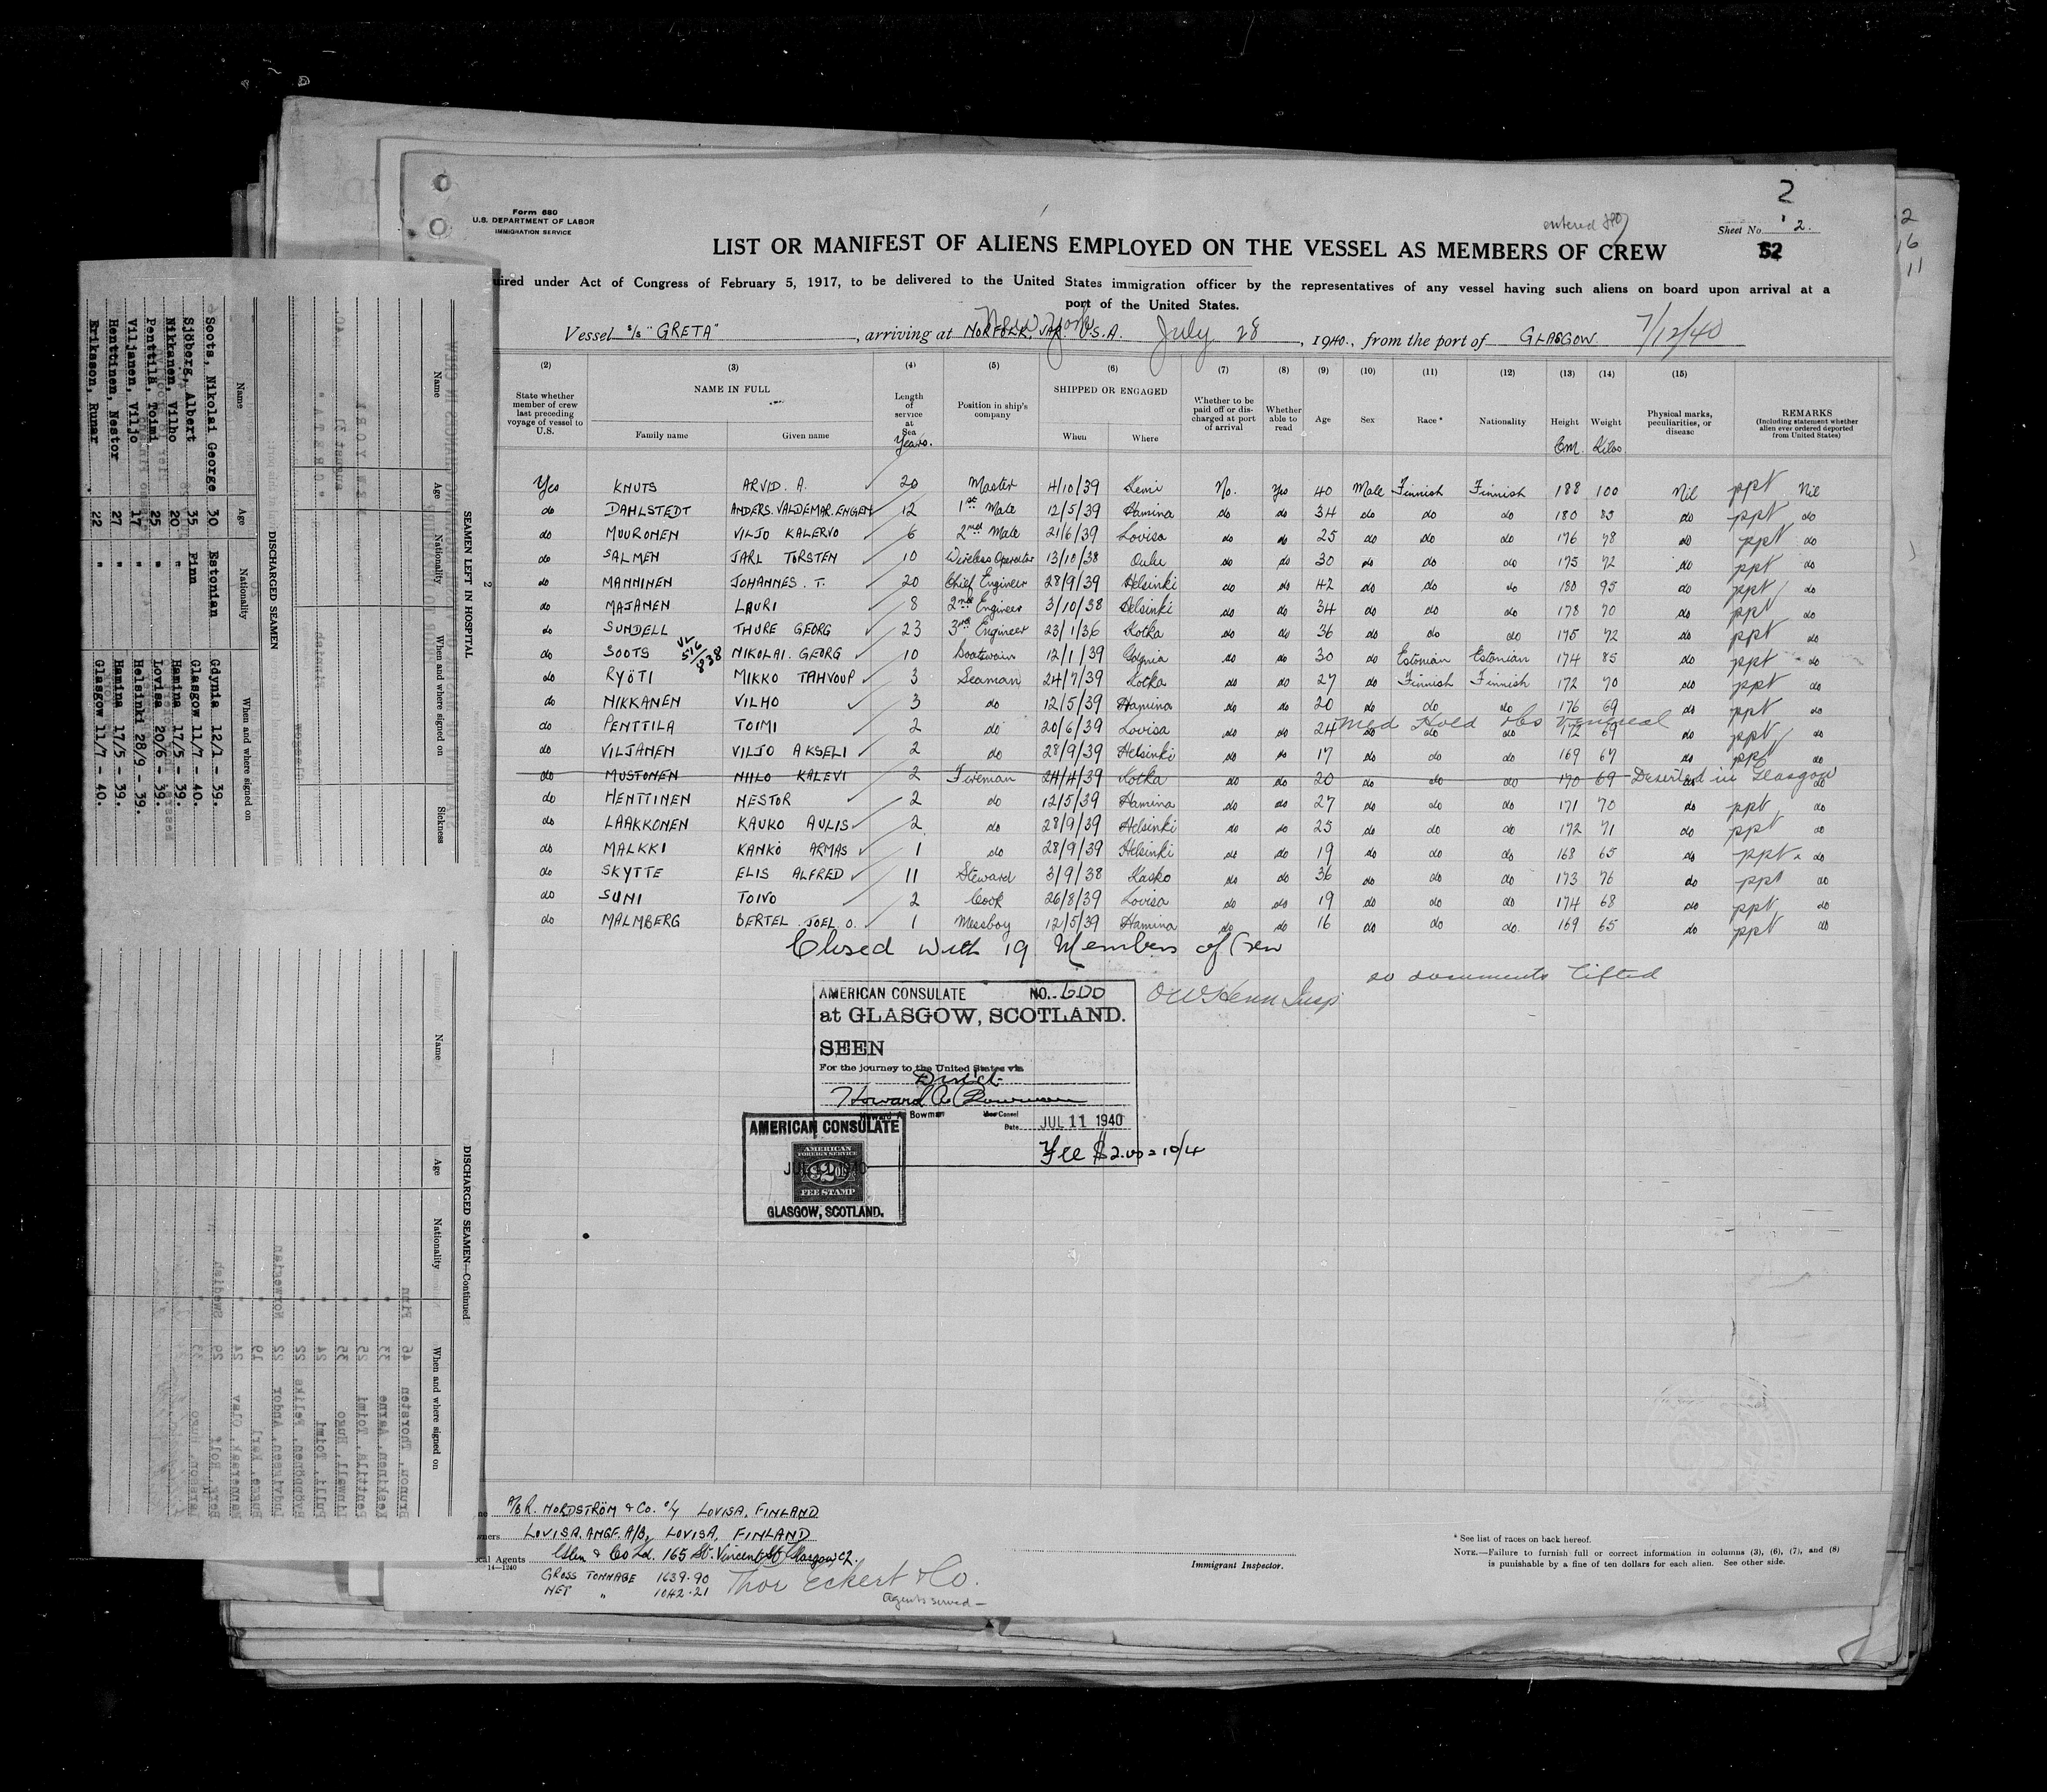 2
entered
Form 680
U.S. DEPARTMENT OF LABOR
IMMIGRATION SERVICE
Sheet No. 2.
LIST OR MANIFEST OF ALIENS EMPLOYED ON THE VESSEL AS MEMBERS OF CREW
52
uired under Act of Congress of February 5, 1917, to be delivered to the United States immigration officer by the representatives of any vessel having such aliens on board upon arrival at a
port of the United States.
Vessel s/s "GRETA", arriving at NORFOLK, VAR. U.S.A. New York July 28, 1940, from the port of GLASGOW 7/12/40
(2) (3) (4) (5) (6) (7) (8) (9) (10) (11) (12) (13) (14) (15)
State whether member of crew last preceding voyage of vessel to U.S. NAME IN FULL Family name Given name Length of service at Sea Years. Position in ship's company SHIPPED OR ENGAGED When Where Whether to be paid off or discharged at port of arrival Whether able to read Age Sex Race* Nationality Height Cm. Weight Kilos Physical marks, peculiarities, or disease REMARKS (Including statement whether alien ever ordered deported from United States)
Yes KNUTS ARVID. A. 20 Master 4/10/39 Kemi No. Yes 40 Male Finnish Finnish 188 100 Nil ppt Nil
do DAHLSTEDT ANDERS. VALDEMAR. ENGEN 12 1st Mate 12/5/39 Hamina do do 34 do do do 180 83 do ppt do
do MUURONEN VILJO KALERVO 6 2nd Mate 21/6/39 Lovisa do do 25 do do do 176 78 do ppt do
do SALMEN JARL TORSTEN 10 Wireless Operator 13/10/38 Oulu do do 30 do do do 175 72 do ppt do
do MANNINEN JOHANNES. T. 20 Chief Engineer 28/9/39 Helsinki do do 42 do do do 180 95 do ppt do
do MAJANEN LAURI 8 2nd Engineer 3/10/38 Helsinki do do 34 do do do 178 70 do ppt do
do SUNDELL THURE GEORG 23 3rd Engineer 23/1/36 Kotka do do 36 do do do 175 72 do ppt do
do SOOTS NIKOLAI. GEORG 10 Boatswain 12/1/39 Gdynia do do 30 do Estonian Estonian 174 85 do ppt do
do RYÖTI MIKKO TAHVOUP 3 Seaman 24/7/39 Kotka do do 27 do Finnish Finnish 172 70 do ppt do
do NIKKANEN VILHO 3 do 12/5/39 Hamina do do 20 do do do 176 69 do ppt do
do PENTTILA TOIMI 2 do 20/6/39 Lovisa do do 24 do do do 172 69 do ppt do
Med Hold obs venereal
do VILJANEN VILJO AKSELI 2 do 28/9/39 Helsinki do do 17 do do do 169 67 do ppt do
do MUSTONEN NIILO KALEVI 2 Fireman 24/4/39 Kotka do do 20 do do do 170 69 Deserted in Glasgow do
do HENTTINEN NESTOR 2 do 12/5/39 Hamina do do 27 do do do 171 70 do ppt do
do LAAKKONEN KAUKO AULIS 2 do 28/9/39 Helsinki do do 25 do do do 172 71 do ppt do
do MALKKI KANKO ARMAS 1 do 28/9/39 Helsinki do do 19 do do do 168 65 do ppt do
do SKYTTE ELIS ALFRED 11 Steward 3/9/38 Kasko do do 36 do do do 173 76 do ppt do
do SUNI TOIVO 2 Cook 26/8/39 Lovisa do do 19 do do do 174 68 do ppt do
do MALMBERG BERTEL. JOEL O. 1 Messboy 12/5/39 Hamina do do 16 do do do 169 65 do ppt do
Closed with 19 Members of Crew
no documents lifted
AMERICAN CONSULATE NO. 600
at GLASGOW, SCOTLAND.
SEEN
For the journey to the United States via
Direct
Howard A. Bowman
Howard A. Bowman Vice Consul
Date JUL 11 1940
Fee $2.00 = 10/4
AMERICAN CONSULATE
AMERICAN
FOREIGN SERVICE
FEE STAMP
GLASGOW, SCOTLAND.
A/B R. NORDSTRÖM & Co. o/y LOVISA, FINLAND
wners LOVISA. ANGF. A/B, LOVISA, FINLAND
cal Agents Glen & Co Ld. 165 St. Vincent St Glasgow C2.
14—1240
GROSS TONNAGE 1639.90
NET " 1042.21
Thor Eckert & Co.
Agents served
Immigrant Inspector.
* See list of races on back hereof.
NOTE.—Failure to furnish full or correct information in columns (3), (6), (7), and (8)
is punishable by a fine of ten dollars for each alien. See other side.
2
SEAMEN LEFT IN HOSPITAL
Name Age Nationality When and where signed on Sickness
DISCHARGED SEAMEN
Name Age Nationality When and where signed on
Soots, Nikolai George 30 Estonian Gdynia 12/1 - 39.
Sjöberg, Albert 35 Finn Glasgow 11/7 - 40.
Nikkanen, Vilho 20 " Hamina 17/5 - 39.
Penttilä, Toimi 25 " Lovisa 20/6 - 39.
Viljanen, Viljo 17 " Helsinki 28/9 - 39.
Henttinen, Nestor 27 " Hamina 17/5 - 39.
Eriksson, Runar 22 " Glasgow 11/7 - 40.
DISCHARGED SEAMEN—Continued
Name Age Nationality When and where signed on